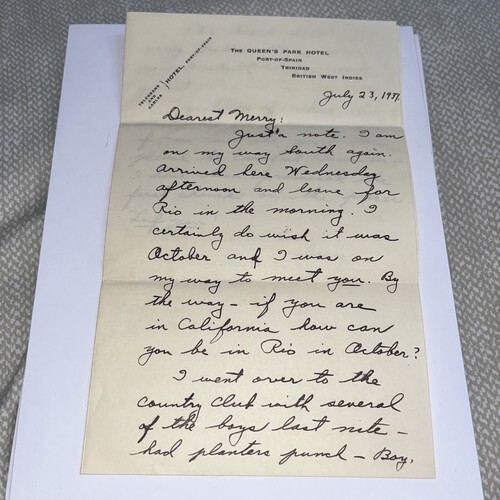 THE QUEEN'S PARK HOTEL
PORT-OF-SPAIN
TRINIDAD
BRITISH WEST INDIES
TELEGRAMS
AND
CABLES
HOTEL, PORT-OF-SPAIN
July 23, 1937.
Dearest Merry:
Just a note. I am
on my way South again.
Arrived here Wednesday
afternoon and leave for
Rio in the morning. I
certainly do wish it was
October and I was on
my way to meet you. By
the way – if you are
in California how can
you be in Rio in October?
I went over to the
country club with several
of the boys last nite –
had planters punch – Boy,